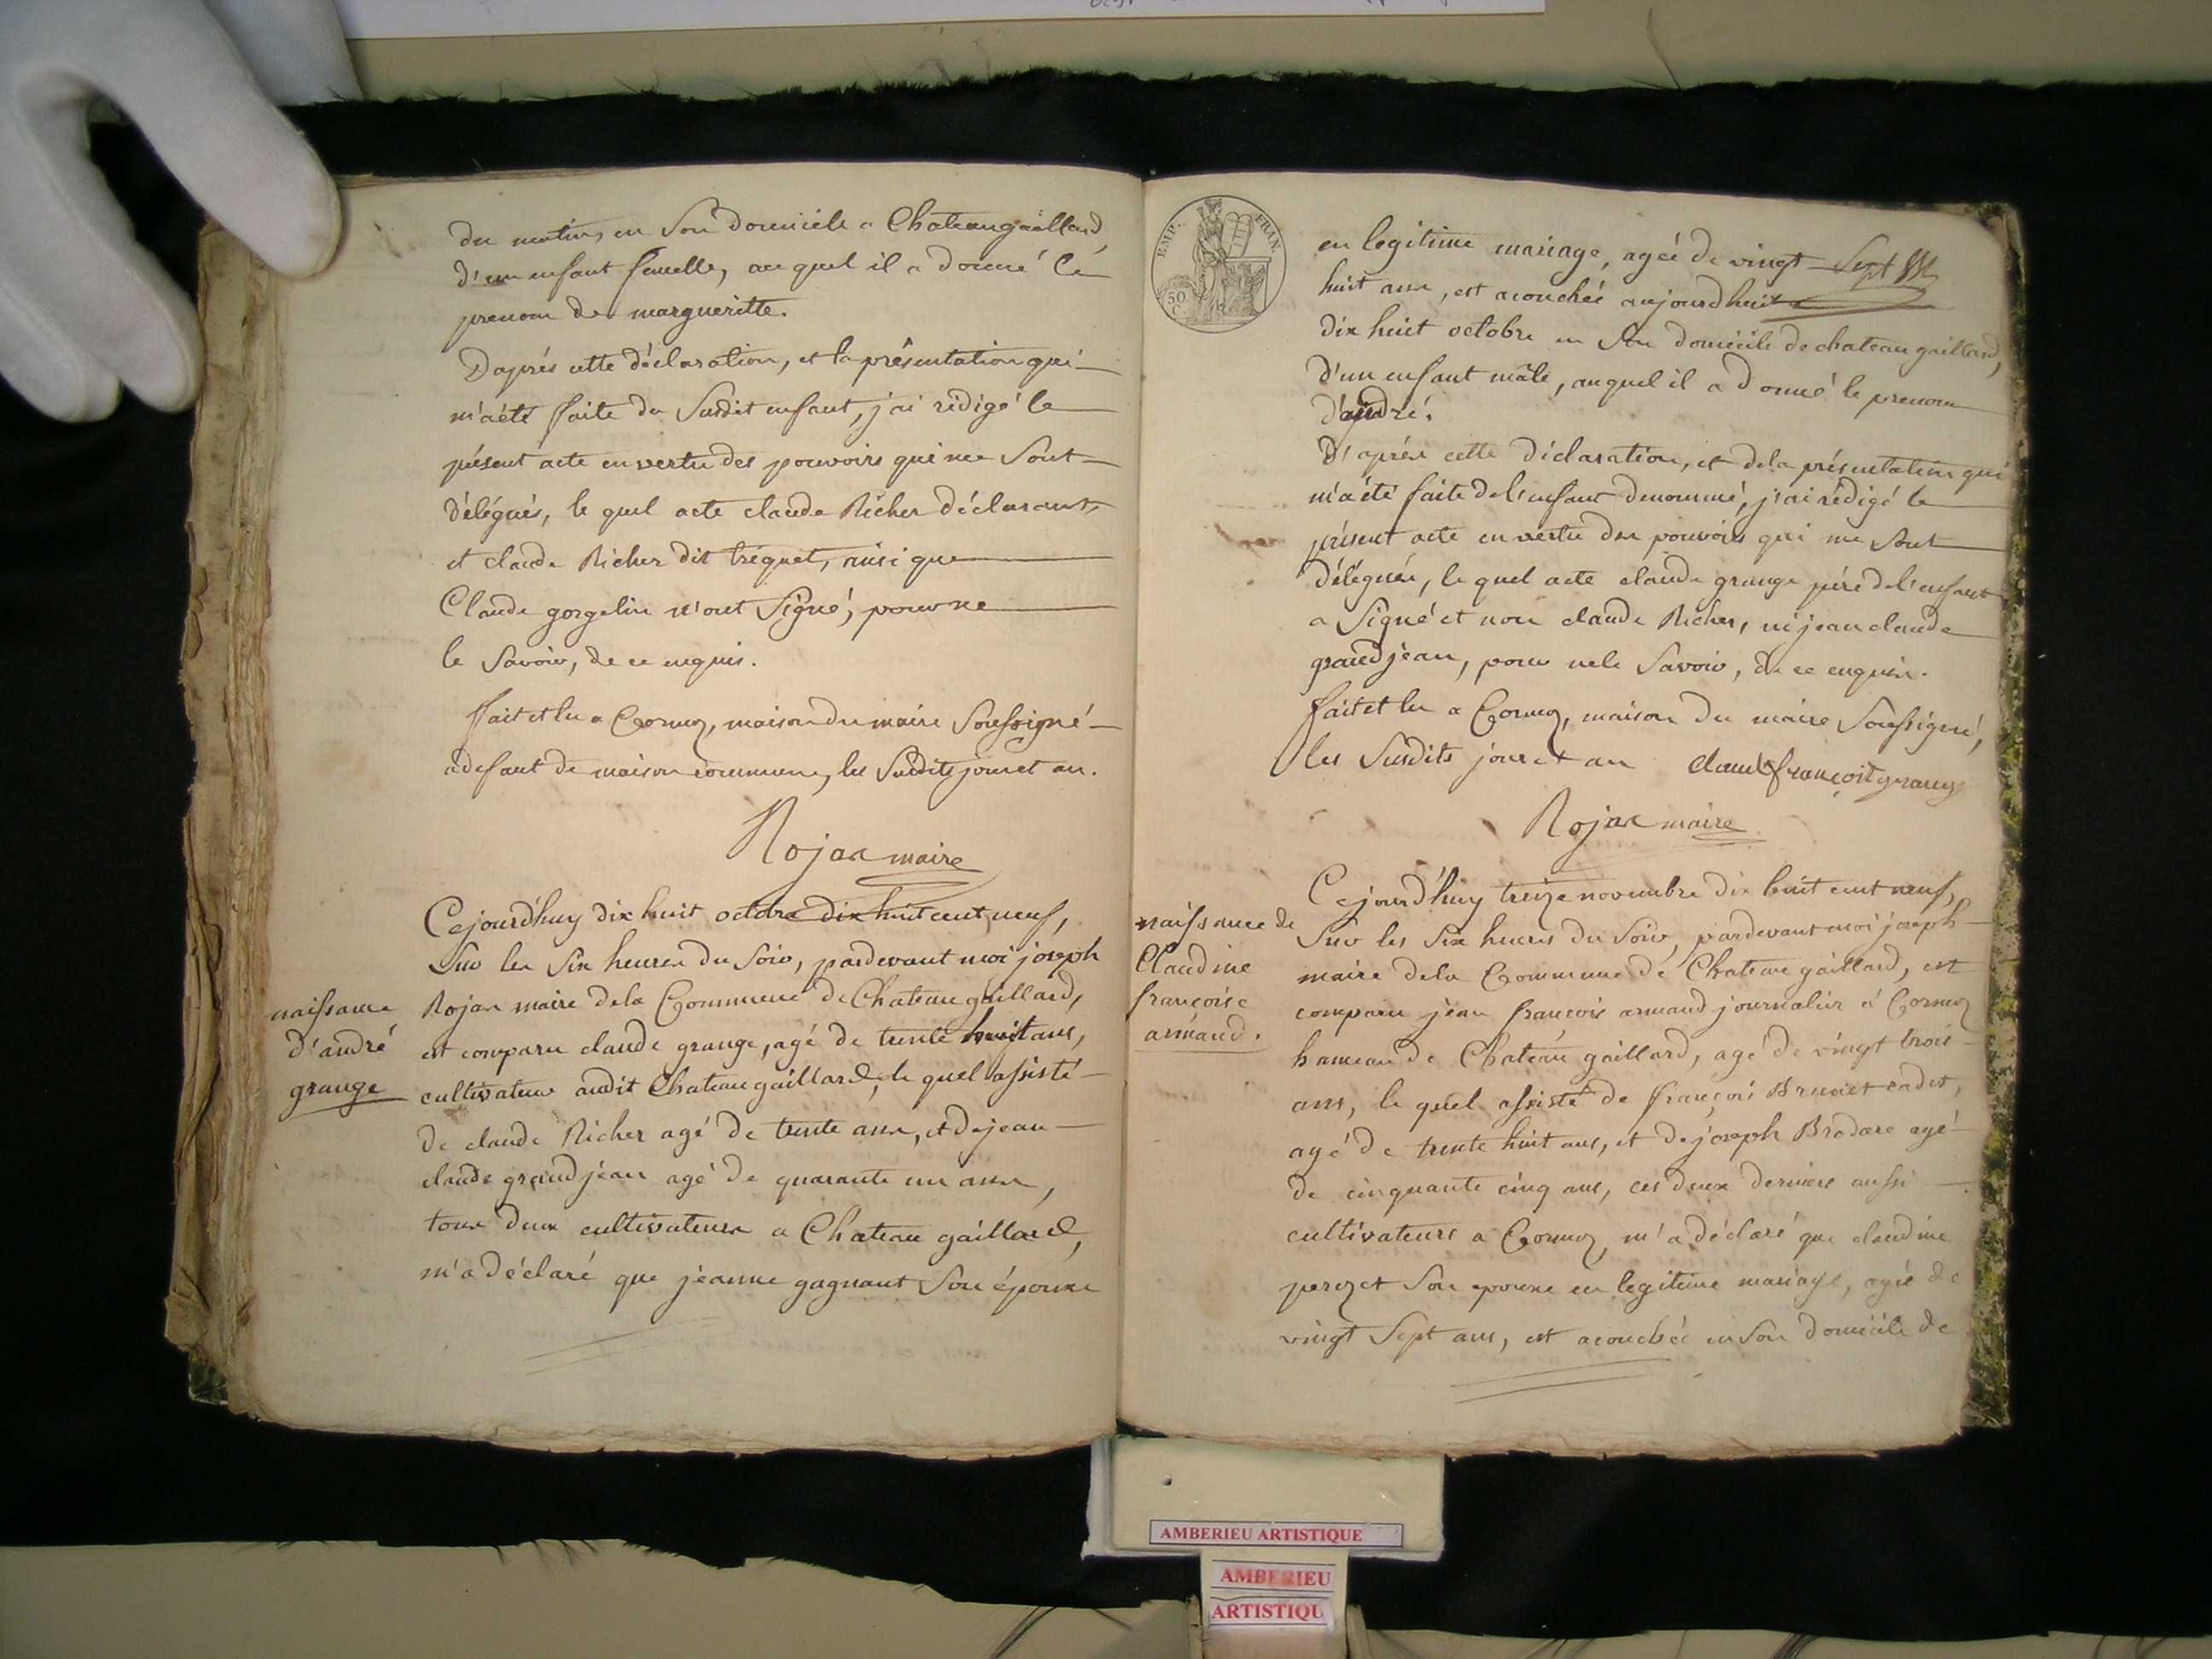 du matin, en Son domicile a Chateaugaillard
d'un enfant femelle, au quel il a donné le
prenom de margueritte.
D'aprés cette déclaration, et la présentation qui
m'a été faite du Susdit enfant, j'ai rédigé le
présent acte en vertu des pouvoirs qui me Sont
délégués, le quel acte claude Richer déclarant,
et claude Richer dit tréquet, ainsi que
Claude gorgelin n'ont Signé, pour ne
le Savoir, de ce enquis.
fait et lu a Cormoz, maison du maire Soussigné
a defaut de maison commune, les Susdits jour et an.
Rojax maire
naissance
d'andré
grange
Cejourd'huy dix huit octobre dix huit cent neuf,
Sur les Six heures du Soir, pardevant moi joseph
Rojax maire dela Commune de Chateaugaillard,
est comparu claude grange, agé de trente huit ans,
cultivateur audit Chateaugaillard, le quel assisté
de claude Richer agé de trente ans, et de jean
claude grandjéan agé de quarante un ans,
tous deux cultivateurs a Chateau gaillard,
m'a déclaré que jéanne gagnant Son épouse
EMP. FRAN.
50
C
en legitime mariage, agée de vingt Sept
huit ans, est acouchée aujourdhuit
dix huit octobre en Son domicile de chateau gaillard,
d'un enfant mâle, auquel il a donné le prenom
d'andré.
D'aprés cette déclaration, et dela présentation qui
m'a été faite del'enfant denommé, j'ai rédigé le
présent acte en vertu des pouvoirs qui me Sont
délégués, le quel acte claude grange pére del'enfant
a Signé et non claude Richer, ni jean claude
grandjéan, pour nele Savoir, de ce enquis.
fait et lu a Cormoz, maison du maire Soussigné,
les Susdits jour et an claude françois grange
Rojax maire
naissance de
Claudine
françoise
armand.
Cejourd'huy treize novembre dix huit cent neuf,
Sur les Six heures du Soir, pardevant moi joseph
maire dela Commune de Chateau gaillard, est
comparu jéan françois armand journalier á Cormoz
hameau de Chateau gaillard, agé de vingt trois
ans, le quel assisté de françois Brunet cadet,
agé de trente huit ans, et de joseph Brodare agé
de cinquante cinq ans, ces deux derniers aussi
cultivateurs a Cormoz, m'a déclaré que claudine
perozet Son epouse en legitime mariage, agée de
vingt Sept ans, est acouchée en Son domicile de
AMBERIEU ARTISTIQUE
AMBERIEU
ARTISTIQU